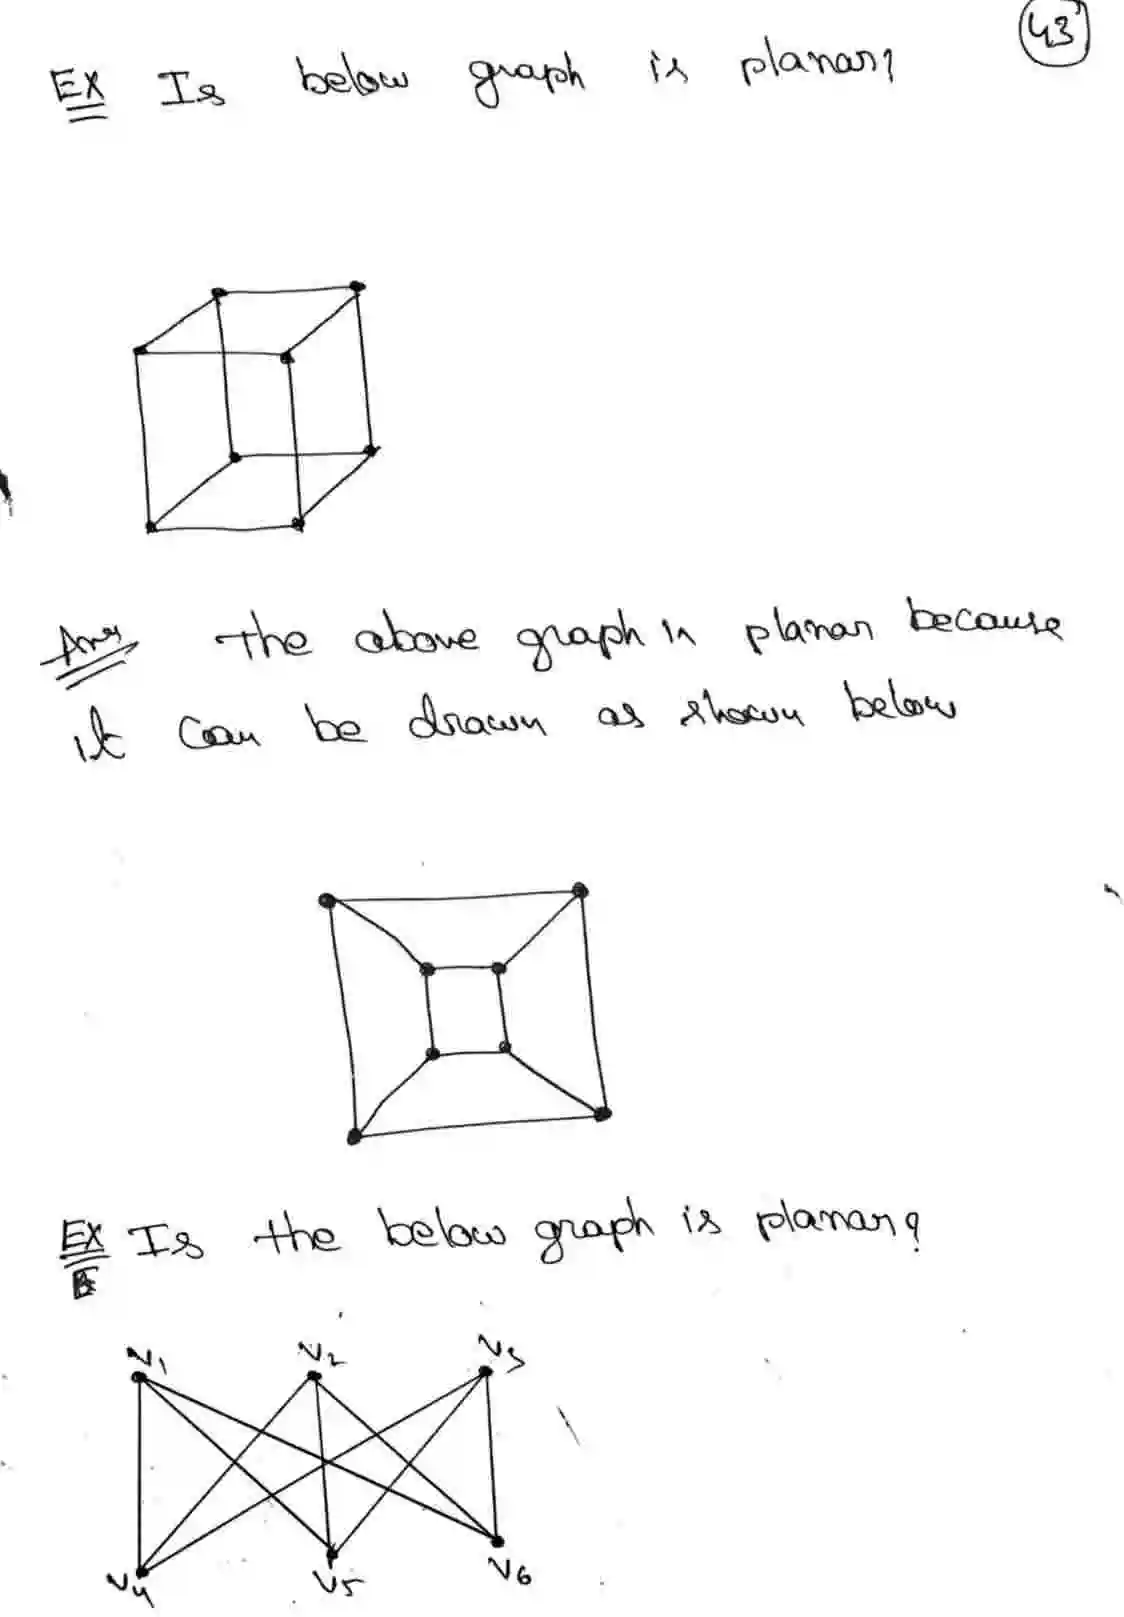 43
Ex Is below graph is planar?
Ans The above graph is planar because
it can be drawn as shown below
Ex Is the below graph is planar?
V1 V2 V3
V4 V5 V6